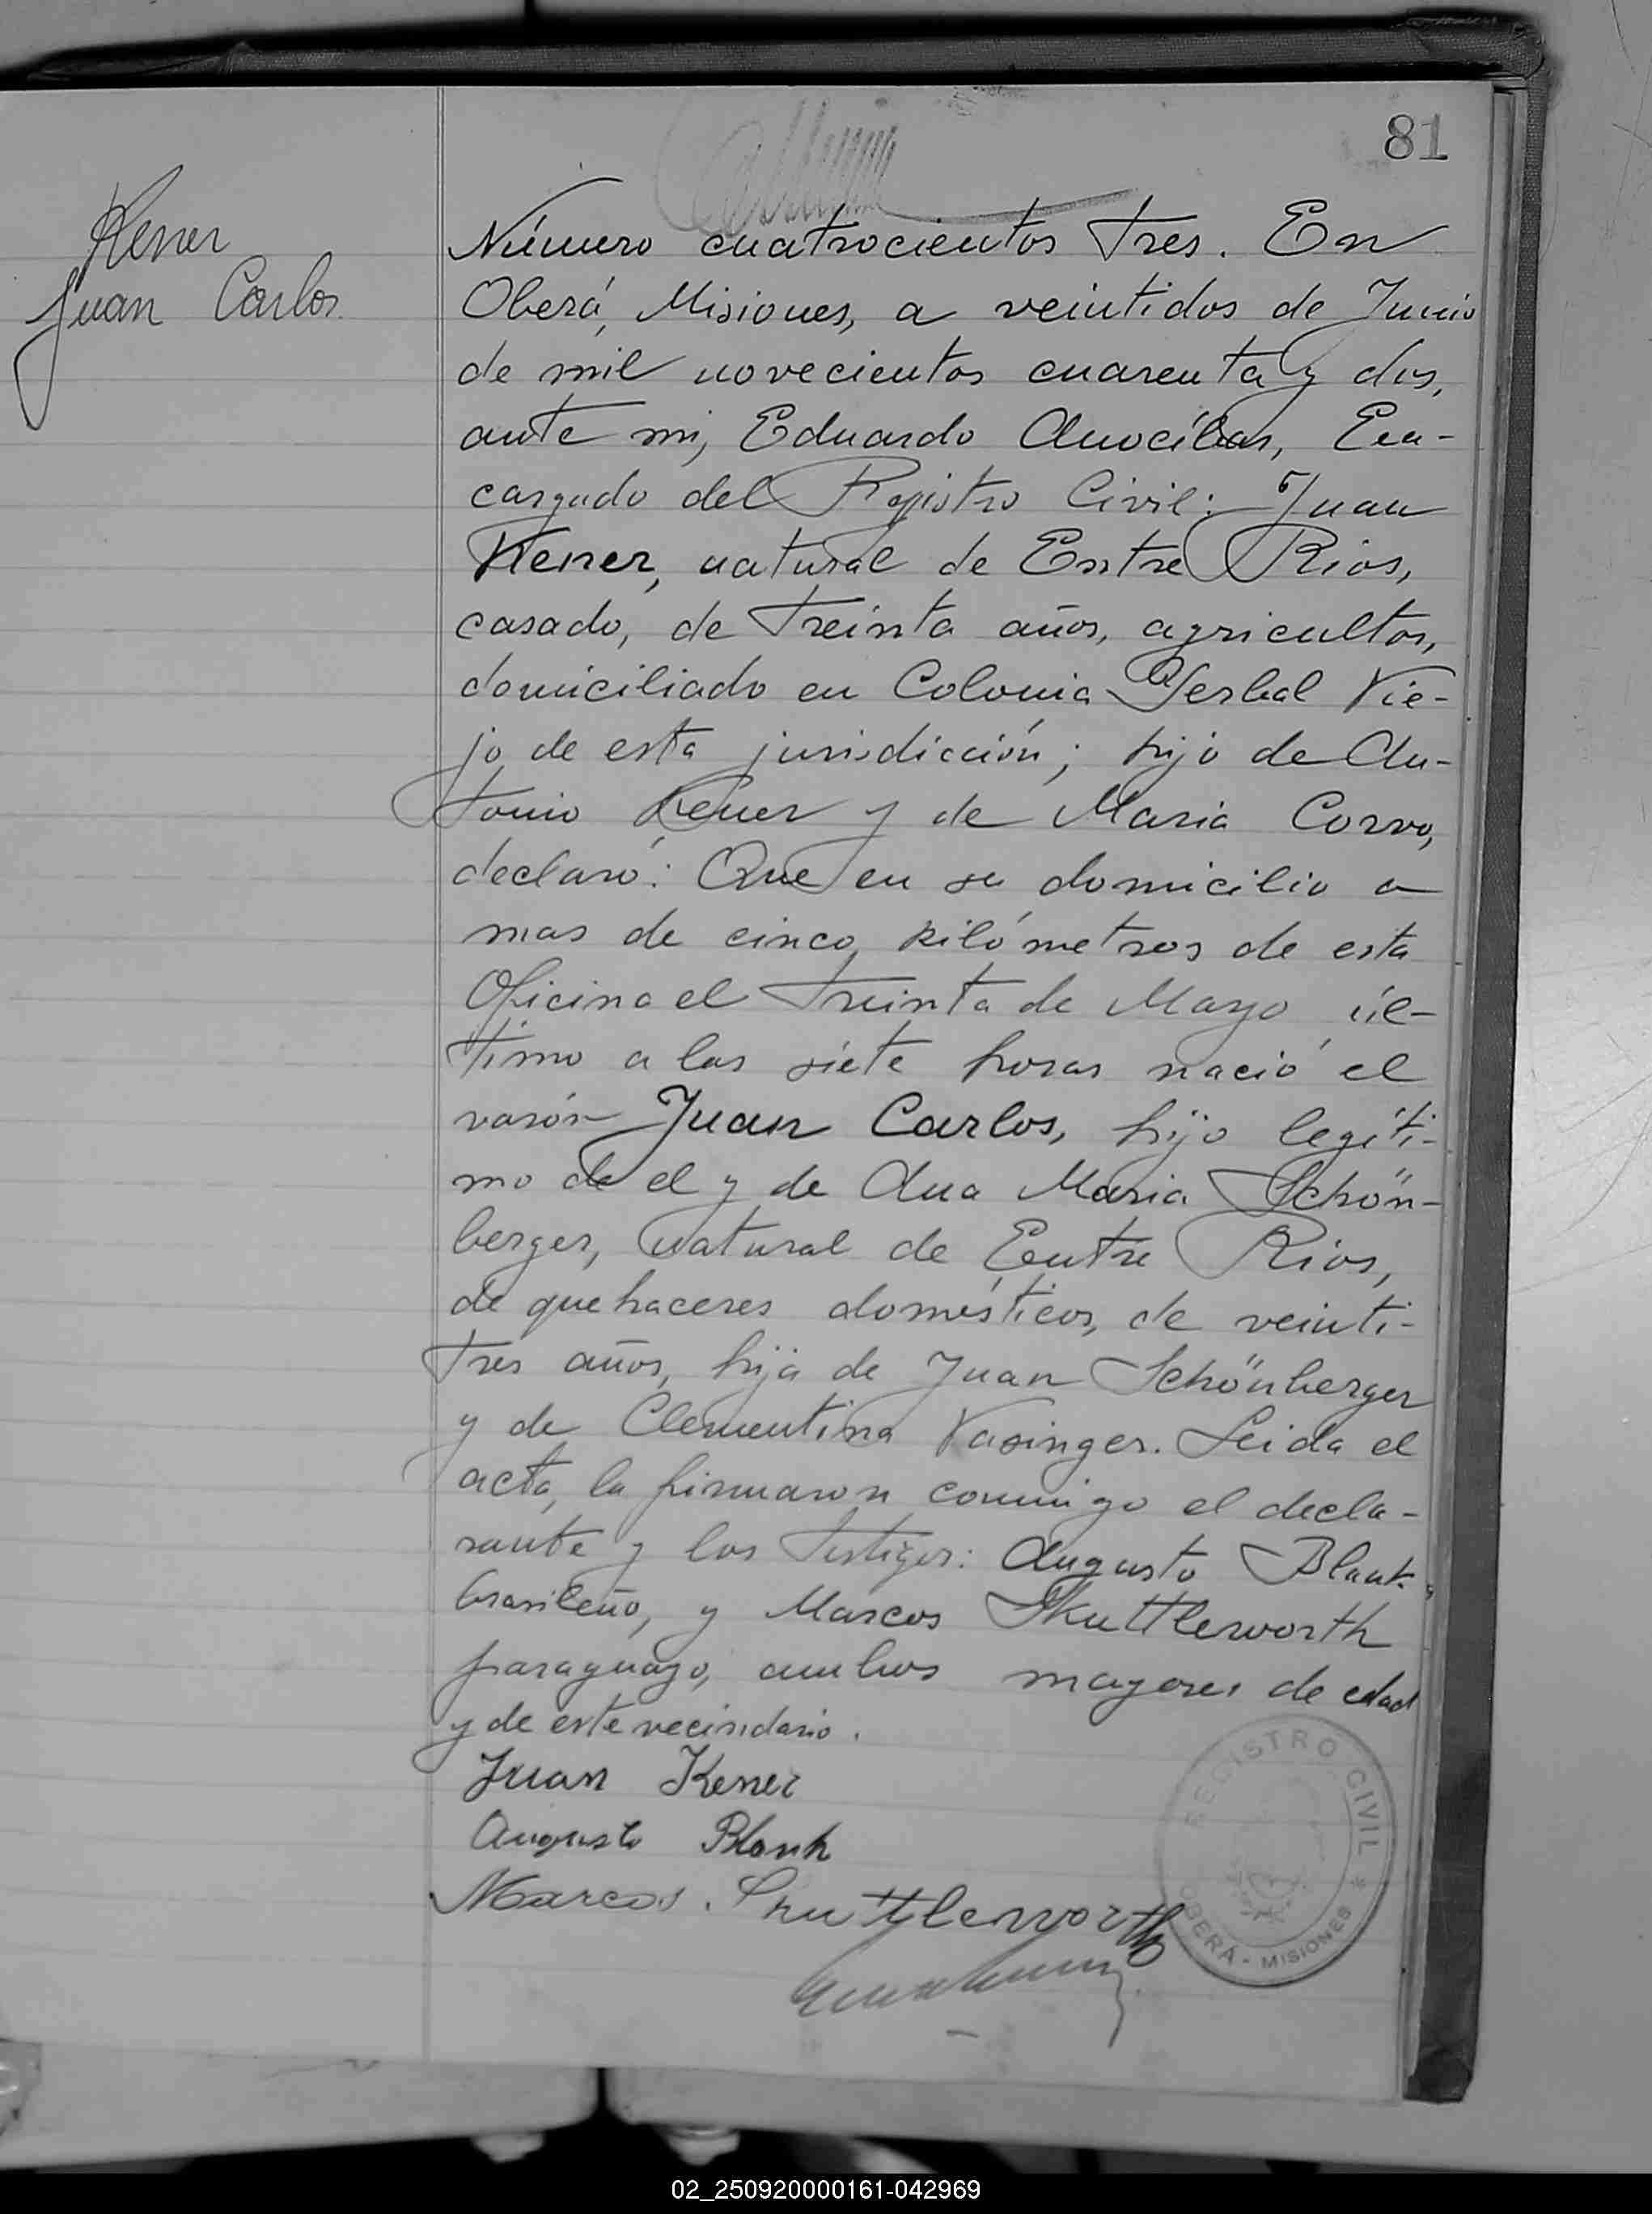 81
Kener
Juan Carlos
Número cuatrocientos tres. En
Oberá, Misiones, a veintidos de Junio
de mil novecientos cuarenta y dos,
ante mi, Eduardo Anocíbar, En-
cargado del Registro Civil: Juan
Kener, natural de Entre Rios,
casado, de treinta años, agricultor,
domiciliado en Colonia Yerbal Vie-
jo de esta jurisdicción; hijo de An-
tonio Kener y de Maria Corvo,
declaró: Que en su domicilio a
mas de cinco kilómetros de esta
Oficina el treinta de Mayo úl-
timo a las siete horas nació el
varón Juan Carlos, hijo legíti-
mo de el y de Ana Maria Schön-
berger, natural de Entre Rios,
de quehaceres domésticos, de veinti-
tres años, hija de Juan Schönberger
y de Clementina Vasinger. Leida el
acta, la firmaron conmigo el decla-
rante y los testigos: Augusto Blank,
brasileño, y Marcos Skuttleworth
paraguayo, ambos mayores de edad
y de este vecindario.
Juan Kener
Augusto Blank
Marcos. Shuttleworth
REGISTRO CIVIL *
OBERÁ - MISIONES
02_250920000161-042969